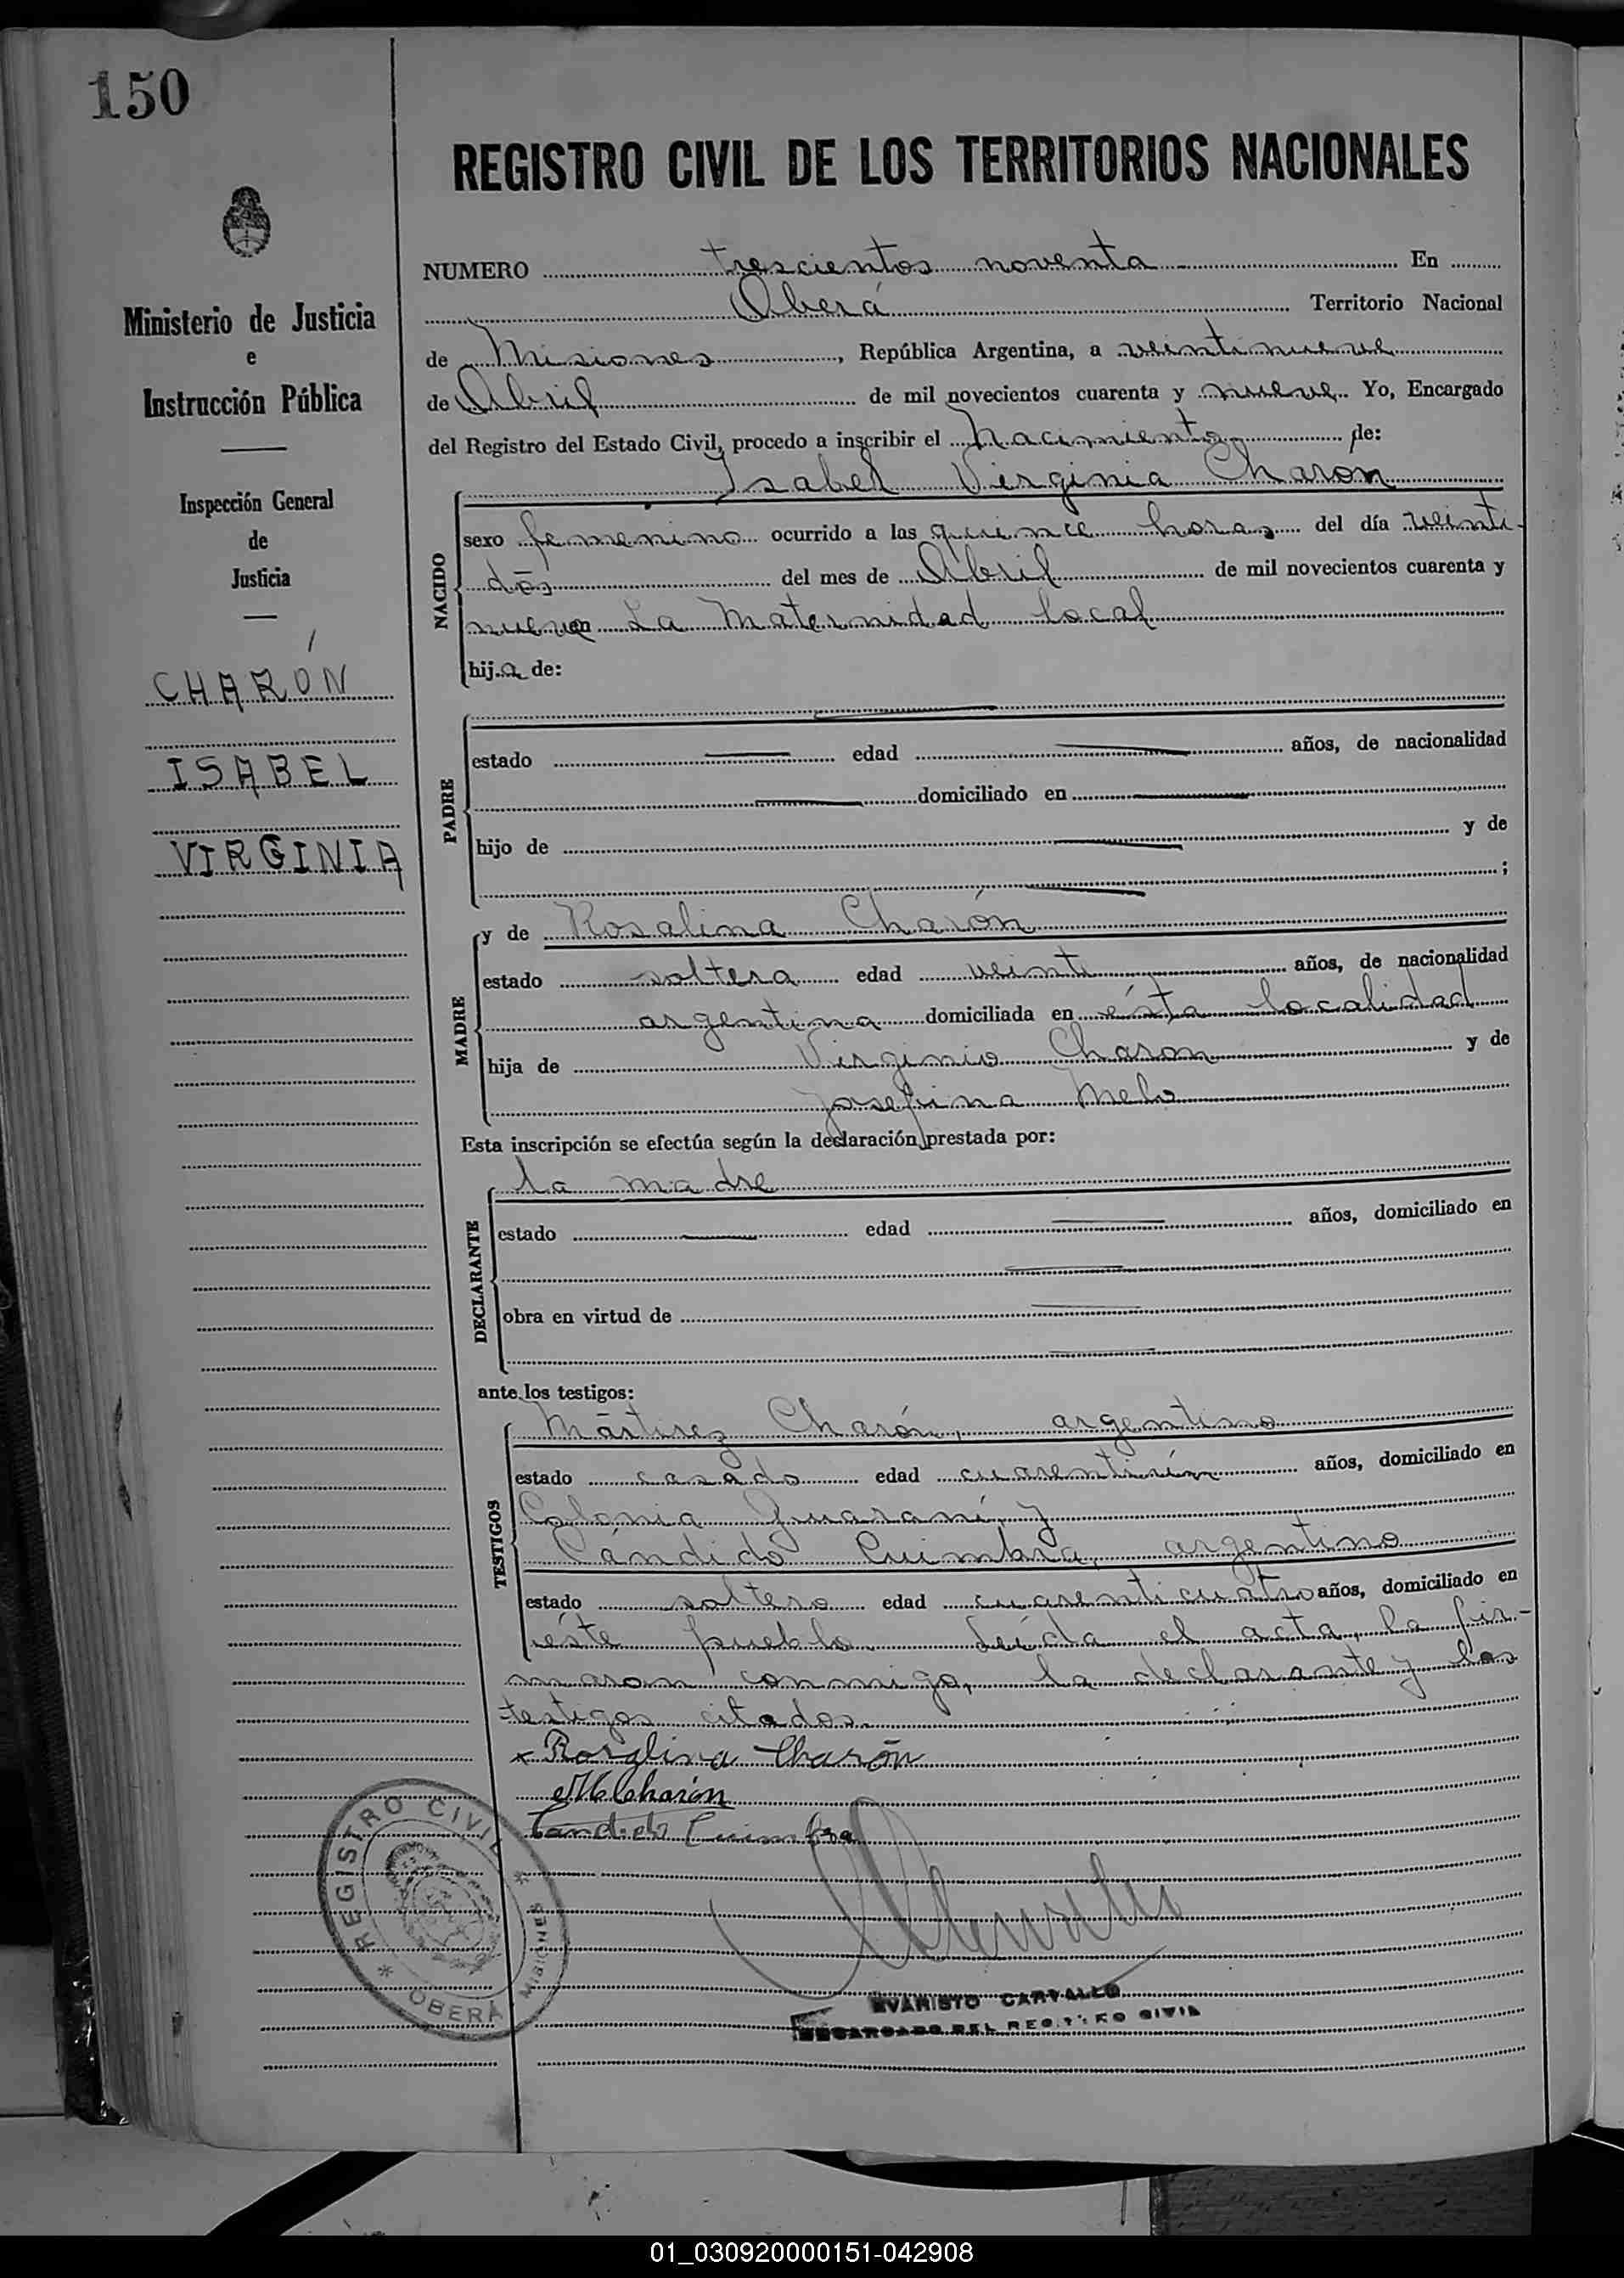 150
REGISTRO CIVIL DE LOS TERRITORIOS NACIONALES
Ministerio de Justicia
e
Instrucción Pública
Inspección General
de
Justicia
CHARÓN
ISABEL
VIRGINIA
NUMERO trescientos noventa En
Oberá Territorio Nacional
de Misiones, República Argentina, a veintinueve
de Abril de mil novecientos cuarenta y nueve. Yo, Encargado
del Registro del Estado Civil, procedo a inscribir el nacimiento de:
Isabel Virginia Charón
NACIDO
sexo femenino ocurrido a las quince horas del día veinti-
dós del mes de Abril de mil novecientos cuarenta y
nueve en La Maternidad local
hija de:
PADRE
estado edad años, de nacionalidad
domiciliado en
hijo de y de
;
MADRE
y de Rosalina Charón
estado soltera edad veinte años, de nacionalidad
argentina domiciliada en ésta localidad
hija de Virginio Charon y de
Josefina Melo
Esta inscripción se efectúa según la declaración prestada por:
DECLARANTE
la madre
estado edad años, domiciliado en
obra en virtud de
ante los testigos:
TESTIGOS
Mártirez Charón, argentino
estado casado edad cuarentiún años, domiciliado en
Colonia Guaraní y
Cándido Cuimbra, argentino
estado soltero edad cuarenticuatro años, domiciliado en
éste pueblo. Leída el acta, la fir-
maron conmigo, la declarante y los
testigos citados.
x Rosalina Charón
M Charón
Candido Cuimbra
REGISTRO CIVIL
* OBERÁ * MISIONES
EVARISTO CARVALLO
ENCARGADO DEL REGISTRO CIVIL
01_030920000151-042908